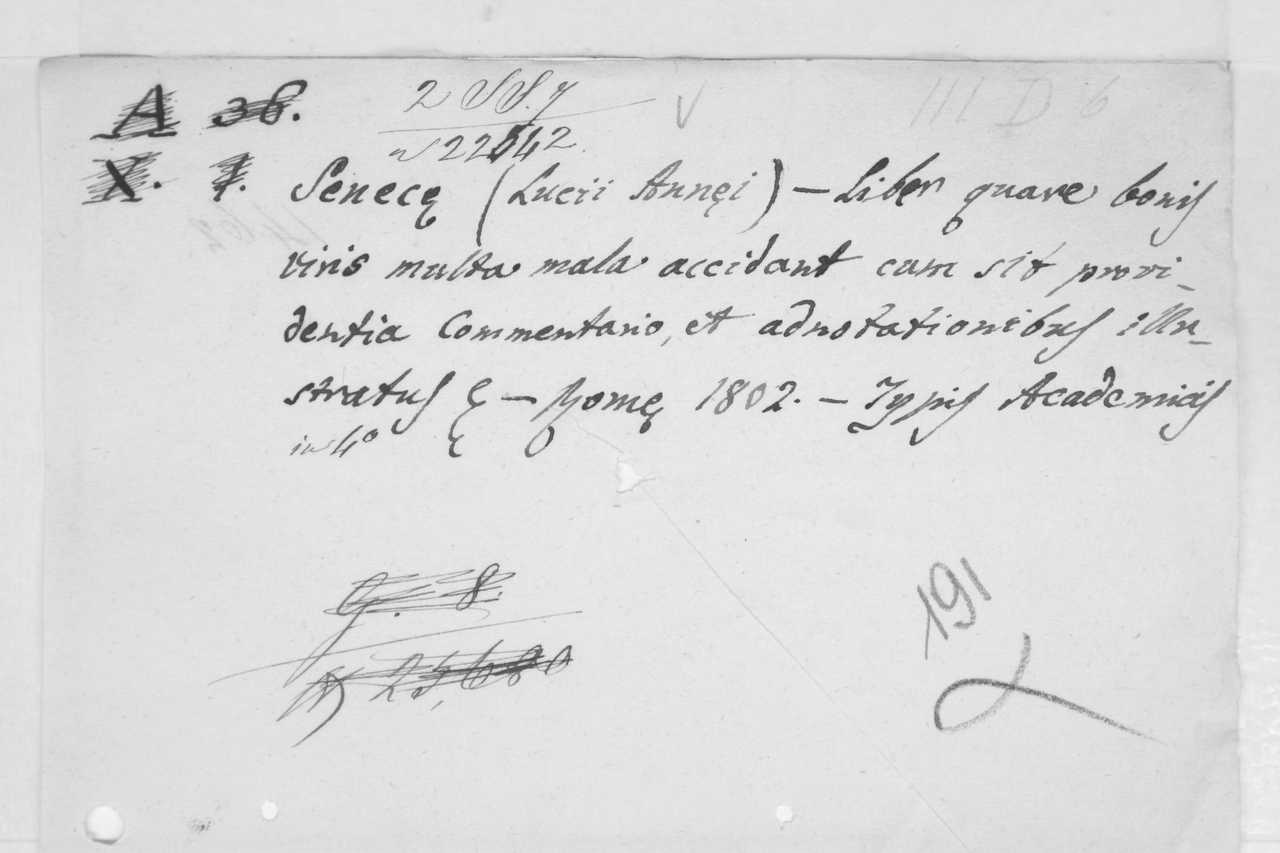 A 36.
2 SS. 7
III D 6
22542
X. 7. Senecę (Lucii Annęi) — Liber quare bonis
viris multa mala accidant cum sit provi-
dentia Commentario, et adnotationibus illu-
stratus — Romę 1802. — Typis Academicis
in 4°
G. 8.
191